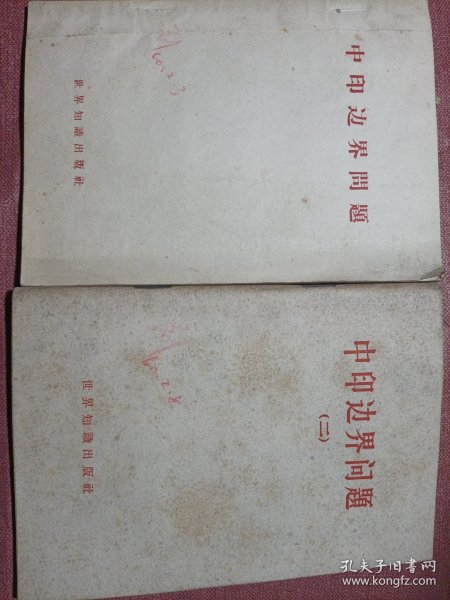 中印边界問題
世界知識出版社
中印边界问題
(二)
世界知識出版社
孔夫子旧书网
www.kongfz.com